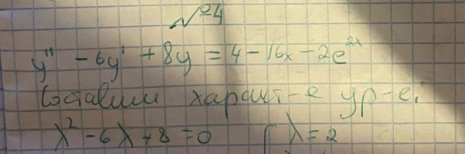 №4
y'' - 6y' + 8y = 4 - 16x - 2e²ˣ
Составим характ-е ур-е:
λ² - 6λ + 8 = 0 [ λ = 2